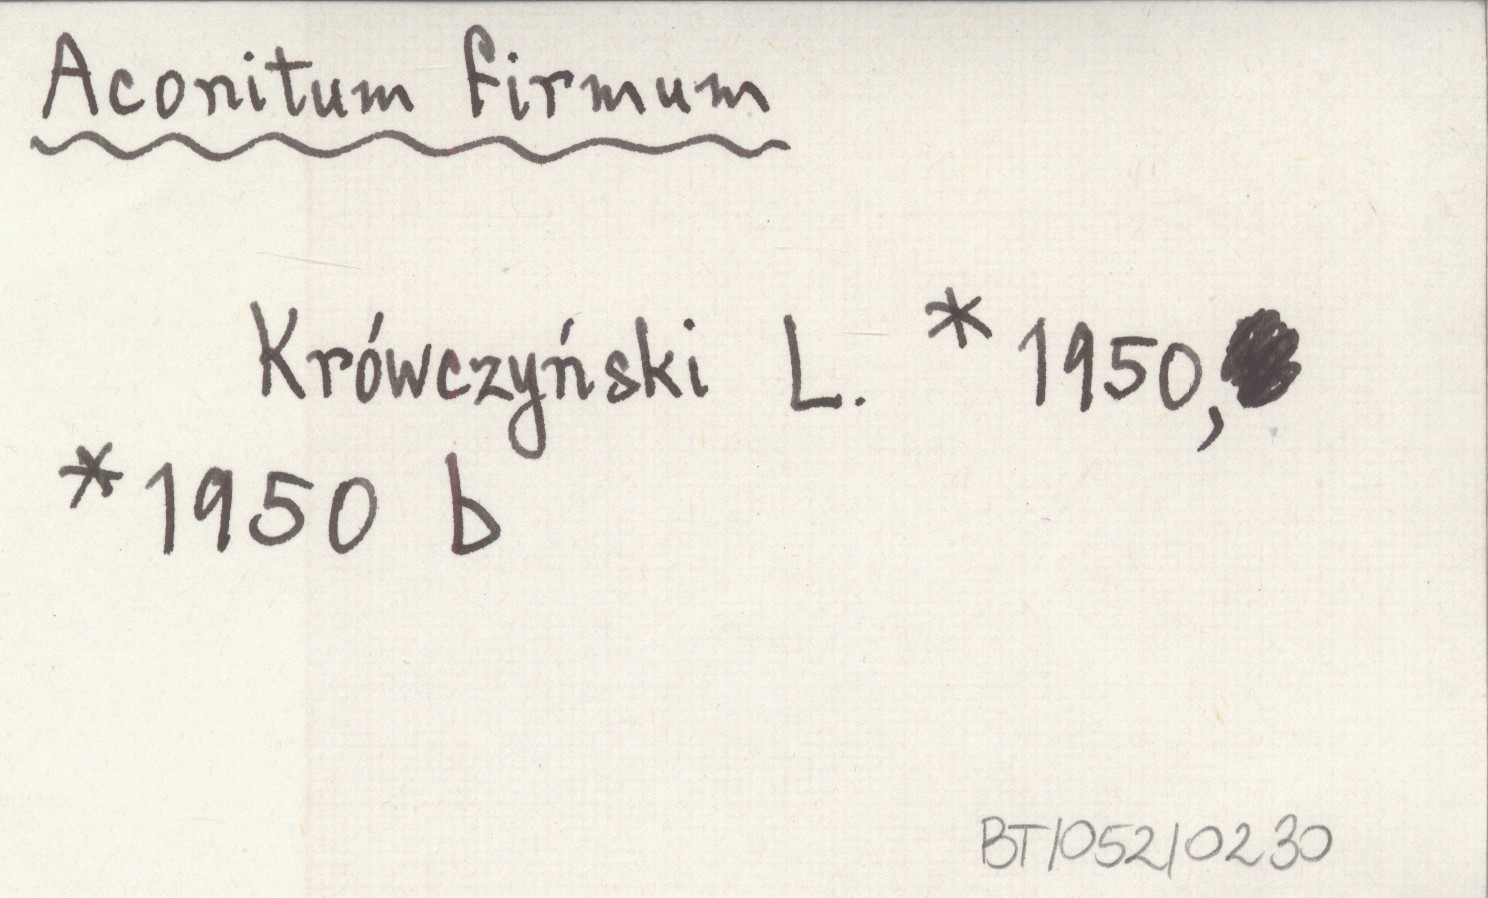 Aconitum firmum
Krówczyński L. *1950,
*1950 b
BT/052/0230